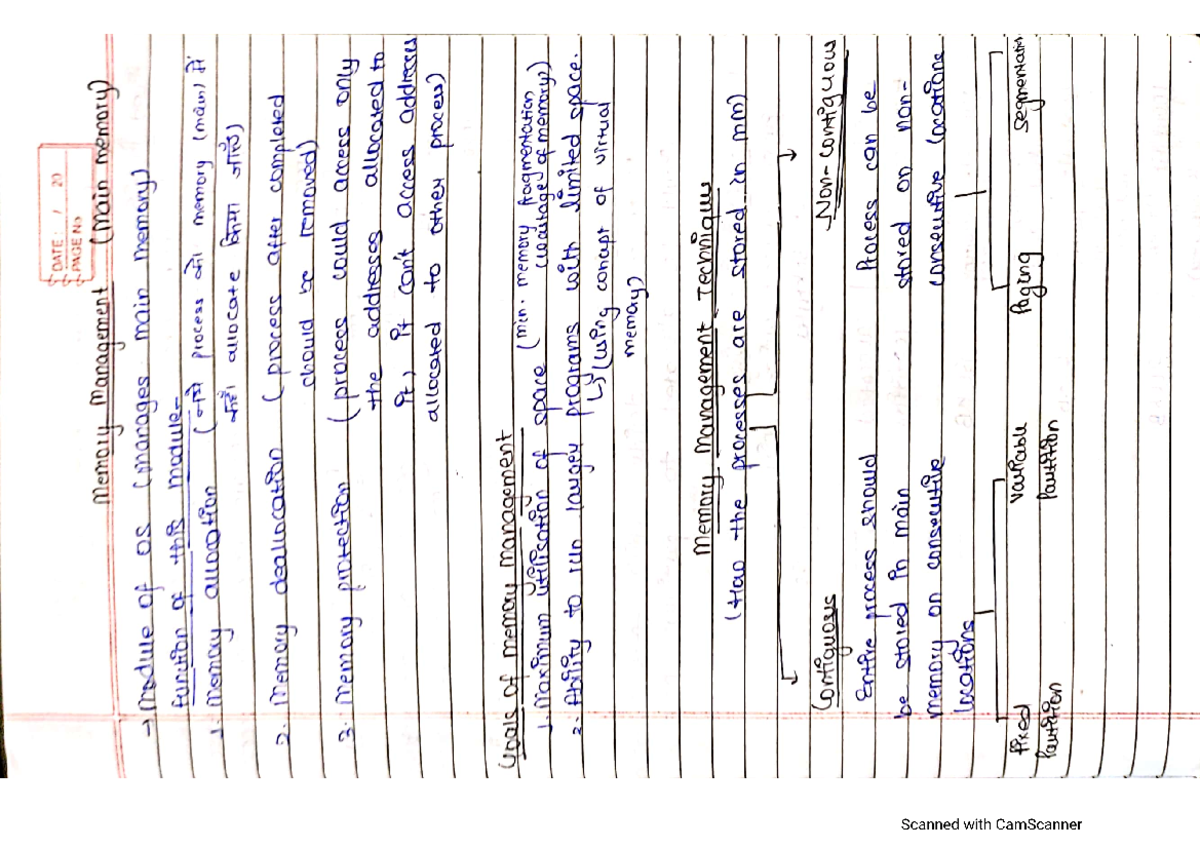 DATE: / 20
PAGE No
Memory Management (Main memory)
→ Module of OS (manages main memory)
function of this module-
1. Memory allocation (नये process को memory (main) में
allocate किया जाये)
2. Memory deallocation (process after completed
should be removed)
3. Memory protection (process could access only
the addresses allocated to
it, it can't access addresses
allocated to other process)
Goals of memory management
1. Maximum utilisation of space (min. memory fragmentation
(wastage of memory))
2. Ability to run larger programs with limited space.
↳ (using concept of virtual
memory)
Memory Management Techniques
(How the processes are stored in mm)
Contiguous
Entire process should
be stored in main
memory on consecutive
locations
fixed partition
variable partition
Non-contiguous
Process can be
stored on non-
consecutive locations
Paging
segmentation
Scanned with CamScanner